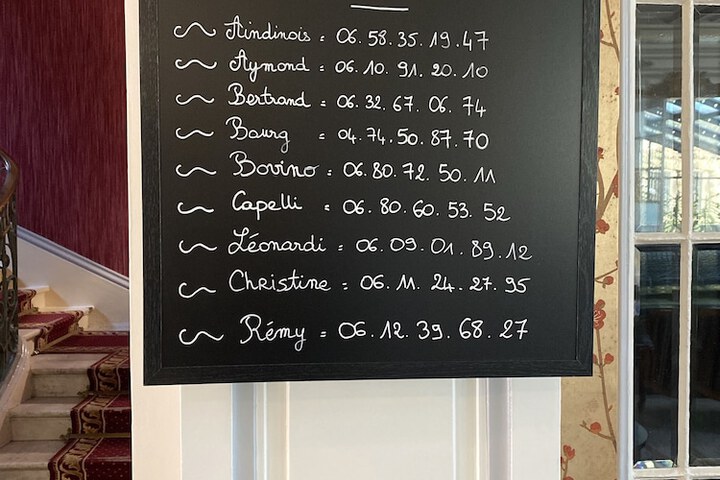 Aindinois = 06.58.35.19.47
Aymond = 06.10.91.20.10
Bertrand = 06.32.67.06.74
Bourg = 04.74.50.87.70
Bovino = 06.80.72.50.11
Capelli = 06.80.60.53.52
Léonardi = 06.09.01.89.12
Christine = 06.11.24.27.95
Rémy = 06.12.39.68.27